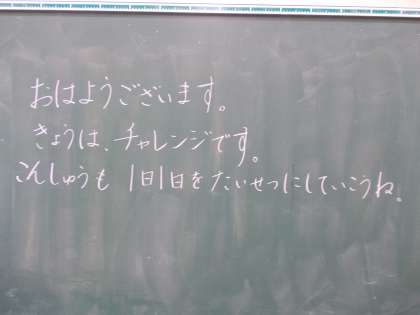 おはようございます。
きょうは、チャレンジです。
こんしゅうも 1日1日をたいせつにしていこうね。